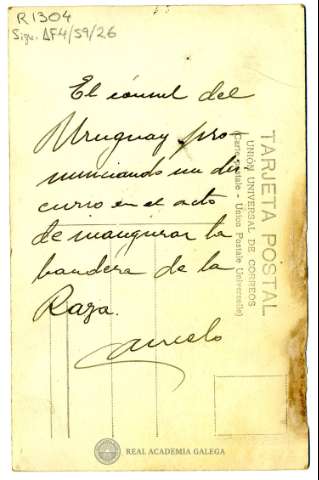 R1304
Sign. AF4/59/26
El cónsul del
Uruguay pro-
nunciando un dis
curso en el acto
de inaugurar la
bandera de la
Raza.
TARJETA POSTAL
UNIÓN UNIVERSAL DE CORREOS
(Carte Postale - Union Postale Universelle)
REAL ACADEMIA GALEGA